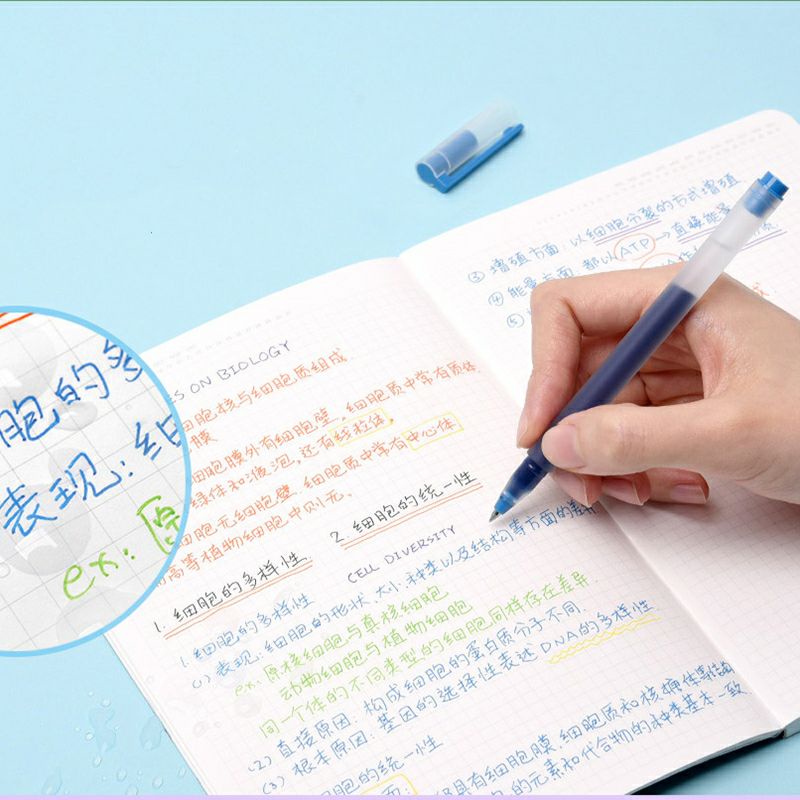 胞的多
表现：细
ex：原
ES ON BIOLOGY
细胞核与细胞质组成.
膜
细胞膜外有细胞壁，细胞质中常有质体，
绿体和液泡，还有线粒体，
细胞无细胞壁，细胞质中常有中心体
高等植物细胞中则无.
1. 细胞的多样性
2. 细胞的统一性
CELL DIVERSITY
1. 细胞的多样性
(1) 表现：细胞的形状、大小、种类以及结构等方面的差异
ex：原核细胞与真核细胞
动物细胞与植物细胞
同一个体的不同类型的细胞同样存在差异.
(2) 直接原因：构成细胞的蛋白质分子不同.
(3) 根本原因：基因的选择性表达 DNA的多样性
细胞的统一性
具有细胞膜、细胞质和核
的元素和化合物的种类基本一致
③ 增殖方面：以细胞分裂的方式增殖
④ 能量方面：都以ATP→直接能量
⑤